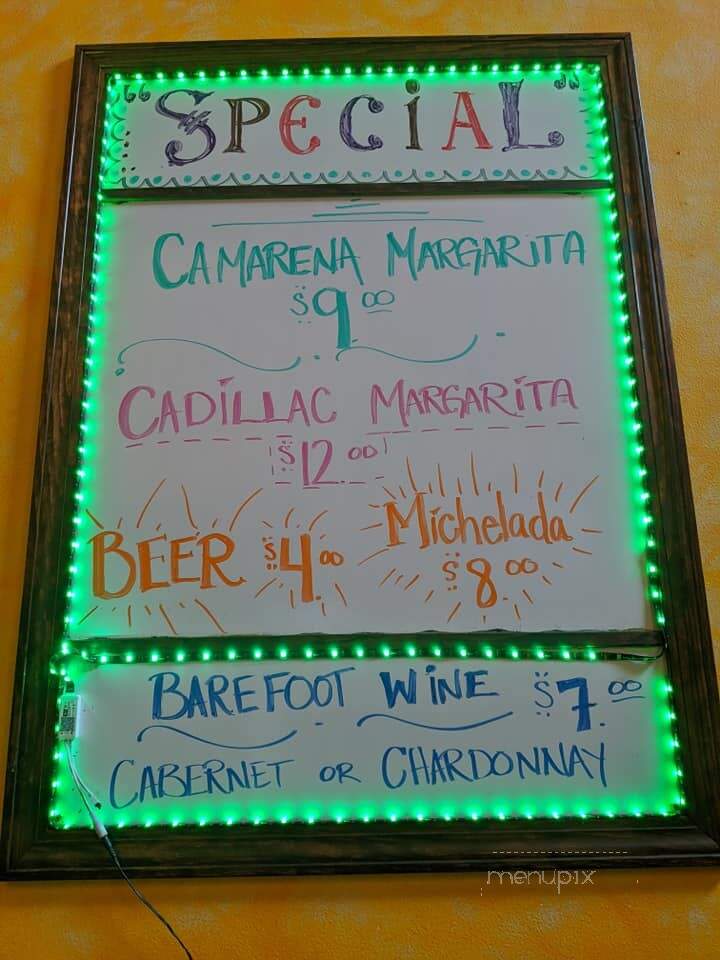 "SPECiAL"
CAMARENA MARGARITA
$9.00
CADiLLAC MARGARiTA
$12.00
BEER $4.00
Michelada
$8.00
BAREFOOT WiNE $7.00
CABERNET OR CHARDONNAY
menupix